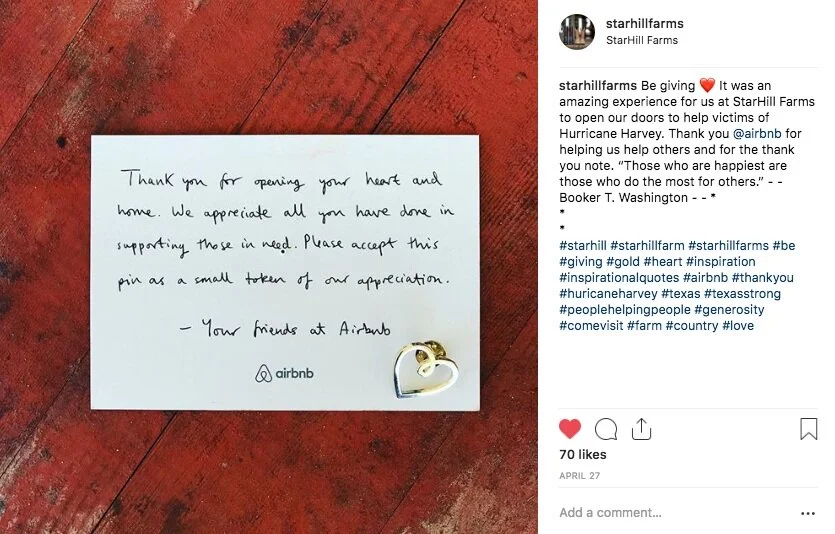 Thank you for opening your heart and
home. We appreciate all you have done in
supporting those in need. Please accept this
pin as a small token of our appreciation.
– Your friends at Airbnb
airbnb
starhillfarms
StarHill Farms
starhillfarms Be giving ❤️ It was an
amazing experience for us at StarHill Farms
to open our doors to help victims of
Hurricane Harvey. Thank you @airbnb for
helping us help others and for the thank
you note. “Those who are happiest are
those who do the most for others.” - -
Booker T. Washington - - *
*
*
#starhill #starhillfarm #starhillfarms #be
#giving #gold #heart #inspiration
#inspirationalquotes #airbnb #thankyou
#huricaneharvey #texas #texasstrong
#peoplehelpingpeople #generosity
#comevisit #farm #country #love
70 likes
APRIL 27
Add a comment...